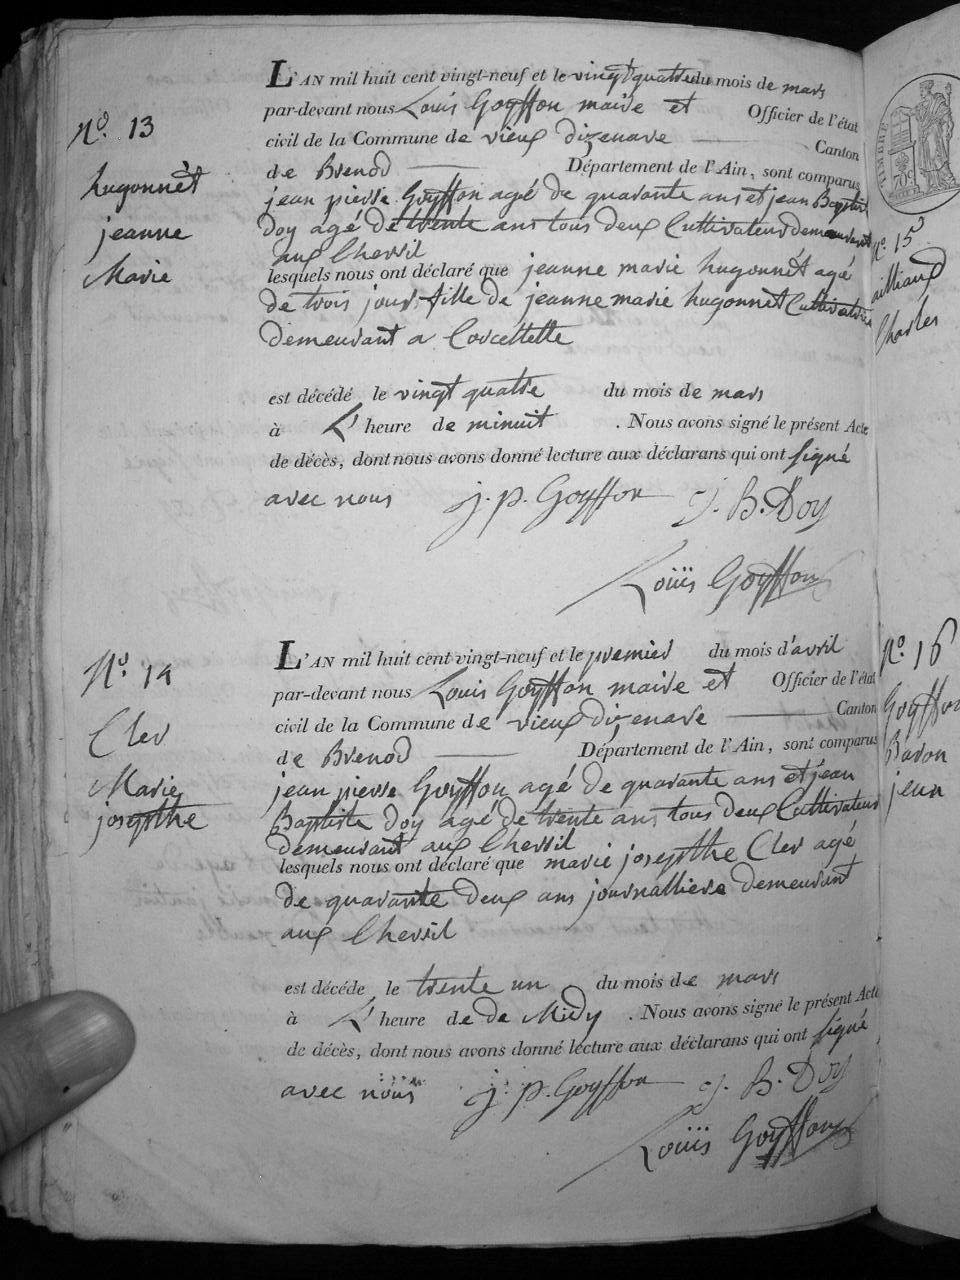 N.o 13
hugonnèt
jeanne
Marie
L'AN mil huit cent vingt-neuf et le vingt quatre du mois de mars
par-devant nous Louis Goyffon maire et Officier de l'état
civil de la Commune de vieux dizenave Canton
de Brenod Département de l'Ain, sont comparus
jean pierre Goyffon agé de quarante ans et jean Baptiste
Doy agé de trente ans tous deux Cultivateurs demeurant
aux Chevril
lesquels nous ont déclaré que jeanne marie hugonnèt agé
de trois jours fille de jeanne marie hugonnèt Cultivatrice
demeurant a Corcellette
est décédé le vingt quatre du mois de mars
à L' heure de minuit . Nous avons signé le présent Acte
de décès, dont nous avons donné lecture aux déclarans qui ont signé
avec nous j. p. Goyffon J. B. Doy
Louiis Goyffon
N.o 14
Cler
Marie
josepthe
L'AN mil huit cent vingt-neuf et le premier du mois d'avril
par-devant nous Louis Goyffon maire et Officier de l'état
civil de la Commune de vieux dizenave Canton
de Brenod Département de l'Ain, sont comparus
jean pierre Goyffon agé de quarante ans et jean
Baptiste Doy agé de trente ans tous deux Cultivateurs
demeurant aux Chevril
lesquels nous ont déclaré que marie josepthe Cler agé
de quarante deux ans journalliere demeurant
aux Chevril
est décéde le trente un du mois de mars
à L' heure de de Midy . Nous avons signé le présent Acte
de décès, dont nous avons donné lecture aux déclarans qui ont signé
avec nous j. p. Goyffon J. B. Doy
Louiis Goyffon
TIMBRE
N.o 15
Charles
N.o 16
Goyffon
Baron
jean